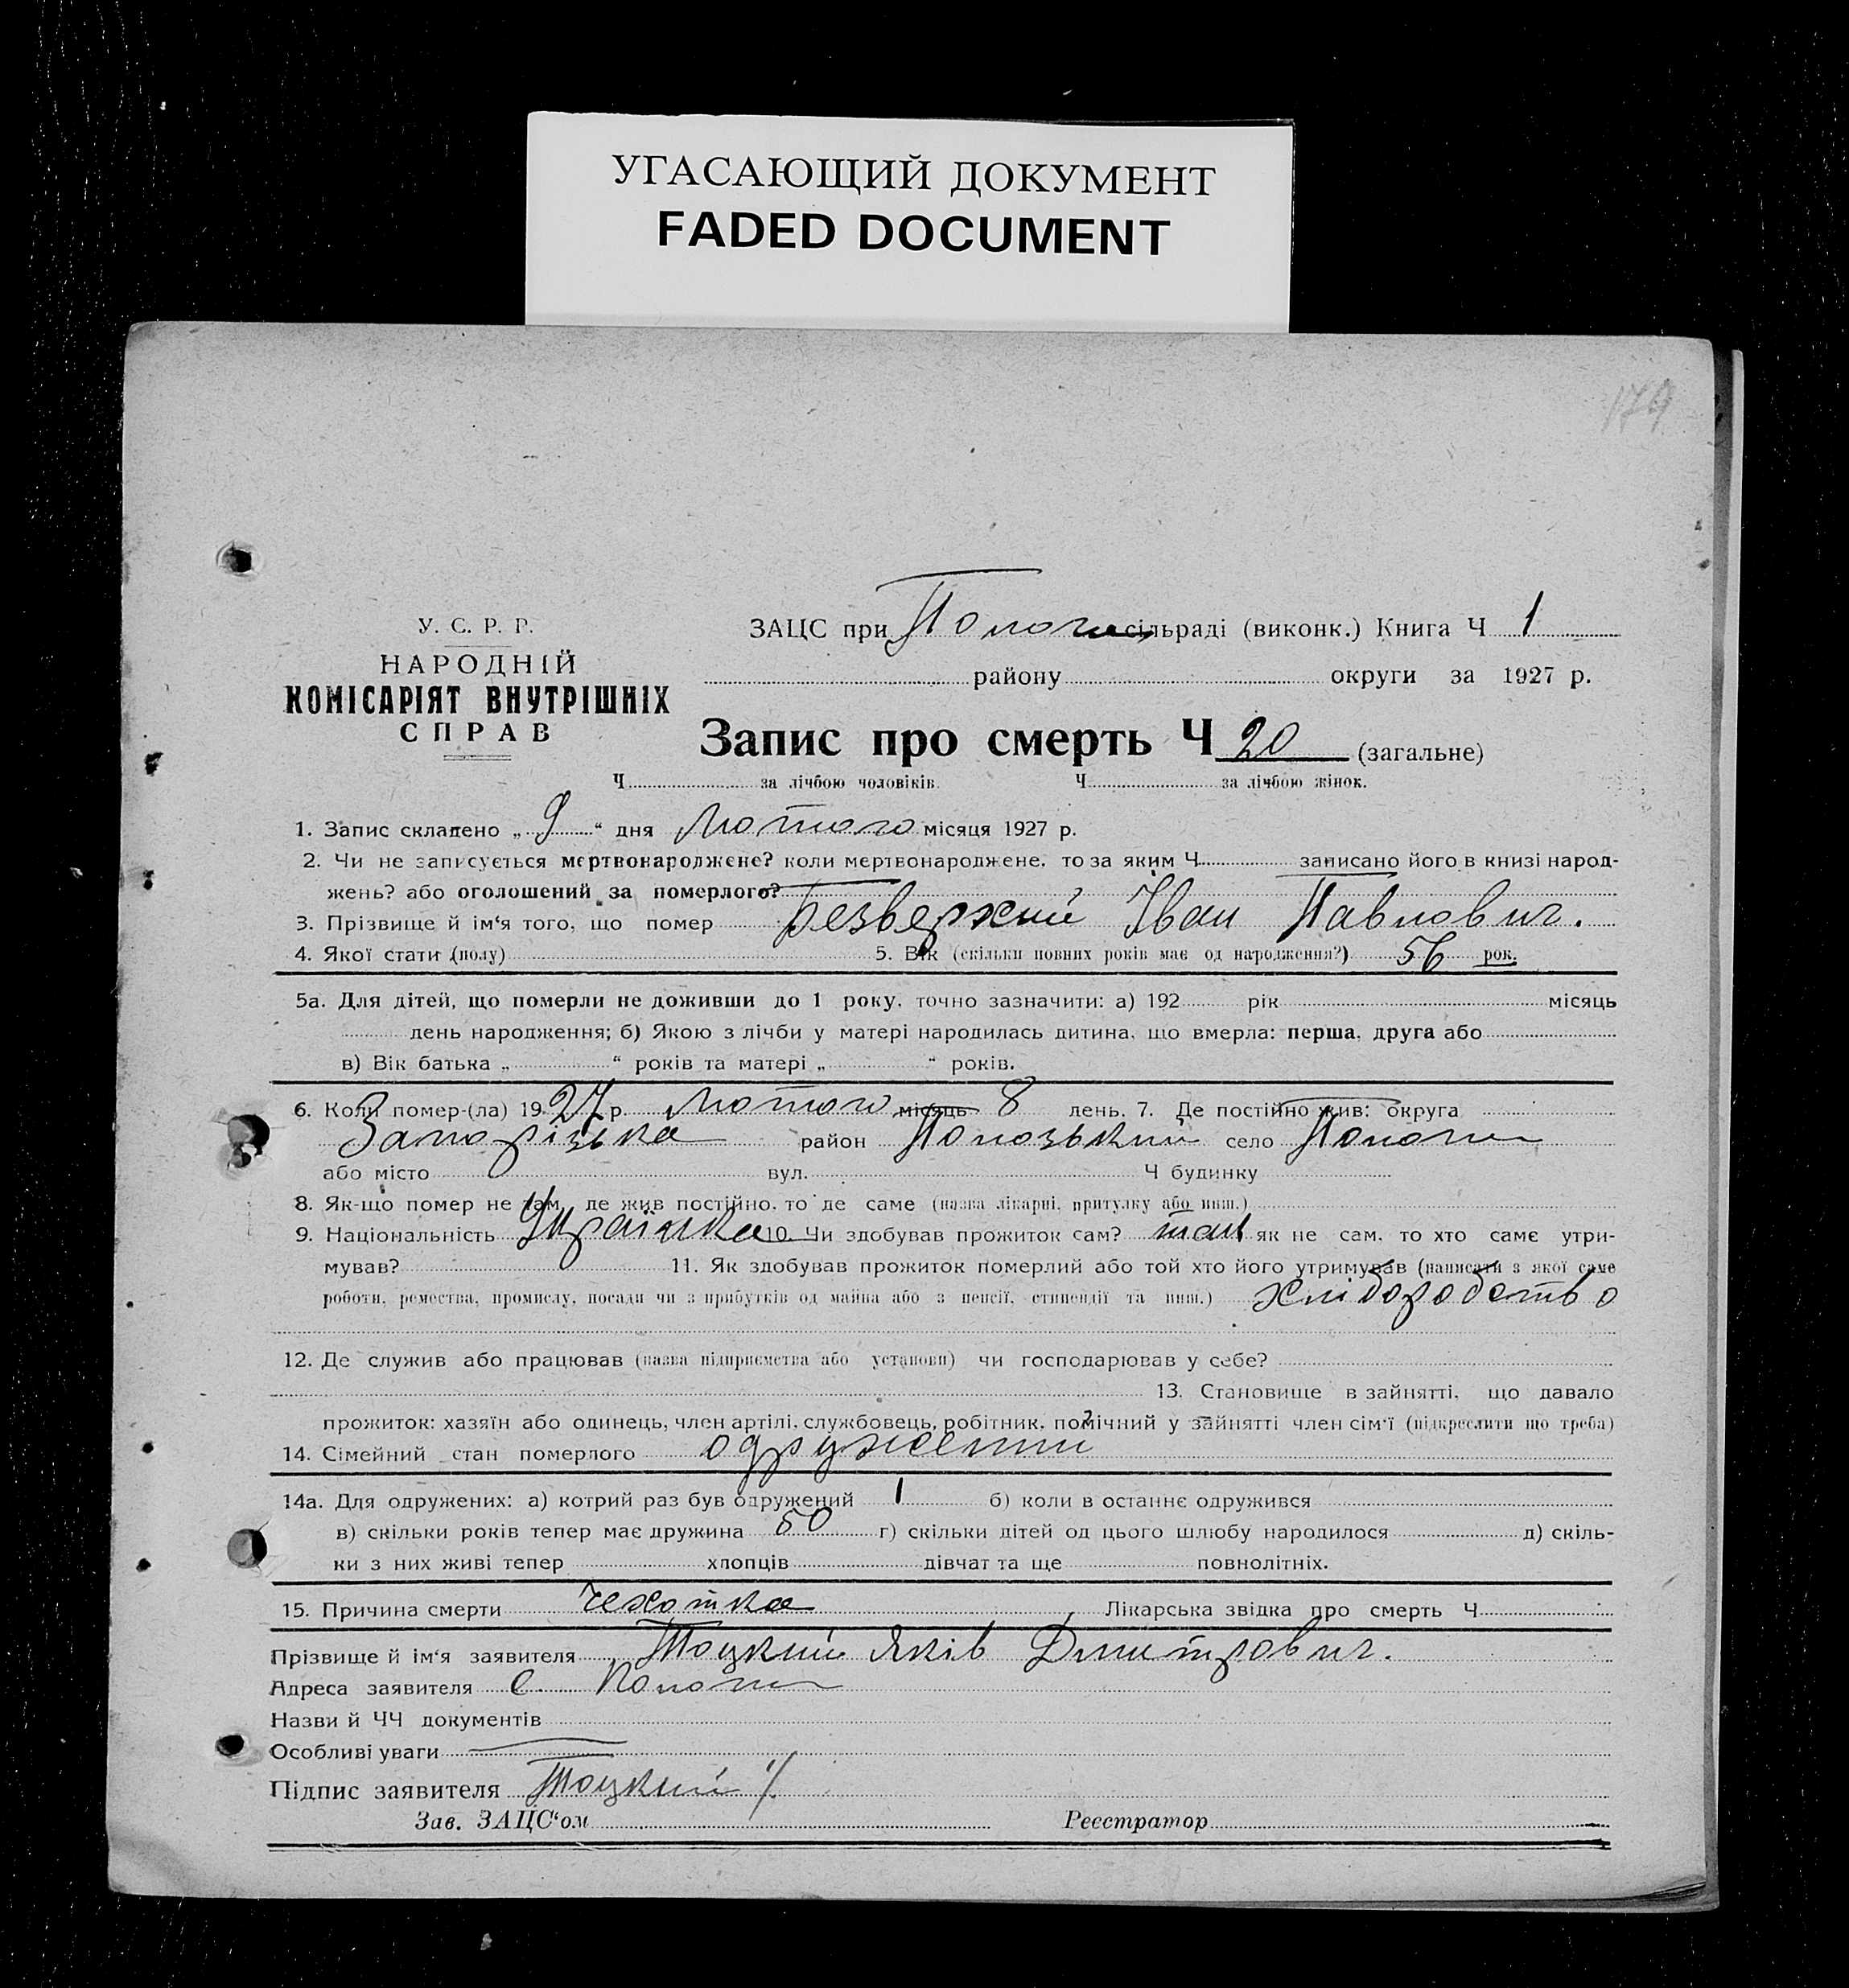 УГАСАЮЩИЙ ДОКУМЕНТ
FADED DOCUMENT
179
У. С. Р. Р.
НАРОДНІЙ
КОМІСАРІЯТ ВНУТРІШНІХ
СПРАВ
ЗАЦС при Пологи сільраді (виконк.) Книга Ч 1
району округи за 1927 р.
Запис про смерть Ч 20 (загальне)
Ч за лічбою чоловіків. Ч за лічбою жінок.
1. Запис складено „ 9 “ дня Лютого місяця 1927 р.
2. Чи не записується мертвонароджене? коли мертвонароджене, то за яким Ч записано його в книзі народ-
жень? або оголошений за померлого?
3. Прізвище й ім‘я того, що помер Безверхий Іван Павлович.
4. Якої стати (полу) 5. Вік (скільки повних років має од народження?) 56 рок.
5а. Для дітей, що померли не доживши до 1 року, точно зазначити: а) 192 рік місяць
день народження; б) Якою з лічби у матері народилась дитина, що вмерла: перша, друга або
в) Вік батька „ “ років та матері „ “ років.
6. Коли помер-(ла) 1927 р. Лютого місяць 8 день. 7. Де постійно жив: округа
Запорізька район Полозький село Пологи
або місто вул. Ч будинку
8. Як-що помер не там, де жив постійно, то де саме (назва лікарні, притулку або инш.)
9. Національність Українка 10. Чи здобував прожиток сам? так як не сам, то хто саме утри-
мував? 11. Як здобував прожиток померлий або той хто його утримував (написати з якої саме
роботи, ремества, промислу, посади чи з прибутків од майна або з пенсії, стипендії та инш.) хліборобство
12. Де служив або працював (назва підприємства або установи) чи господарював у себе?
13. Становище в зайнятті, що давало
прожиток: хазяїн або одинець, член артілі, службовець, робітник, помічний у зайнятті член сім‘ї (підкреслити що треба)
14. Сімейний стан померлого одружений
14а. Для одружених: а) котрий раз був одружений 1 б) коли в останнє одружився
в) скільки років тепер має дружина 50 г) скільки дітей од цього шлюбу народилося д) скіль-
ки з них живі тепер хлопців дівчат та ще повнолітніх.
15. Причина смерти чехотка Лікарська звідка про смерть Ч
Прізвище й ім‘я заявителя Тоцкий Яків Дмитрович.
Адреса заявителя с. Пологи
Назви й ЧЧ документів
Особливі уваги
Підпис заявителя Тоцкий
Зав. ЗАЦС‘ом Реєстратор